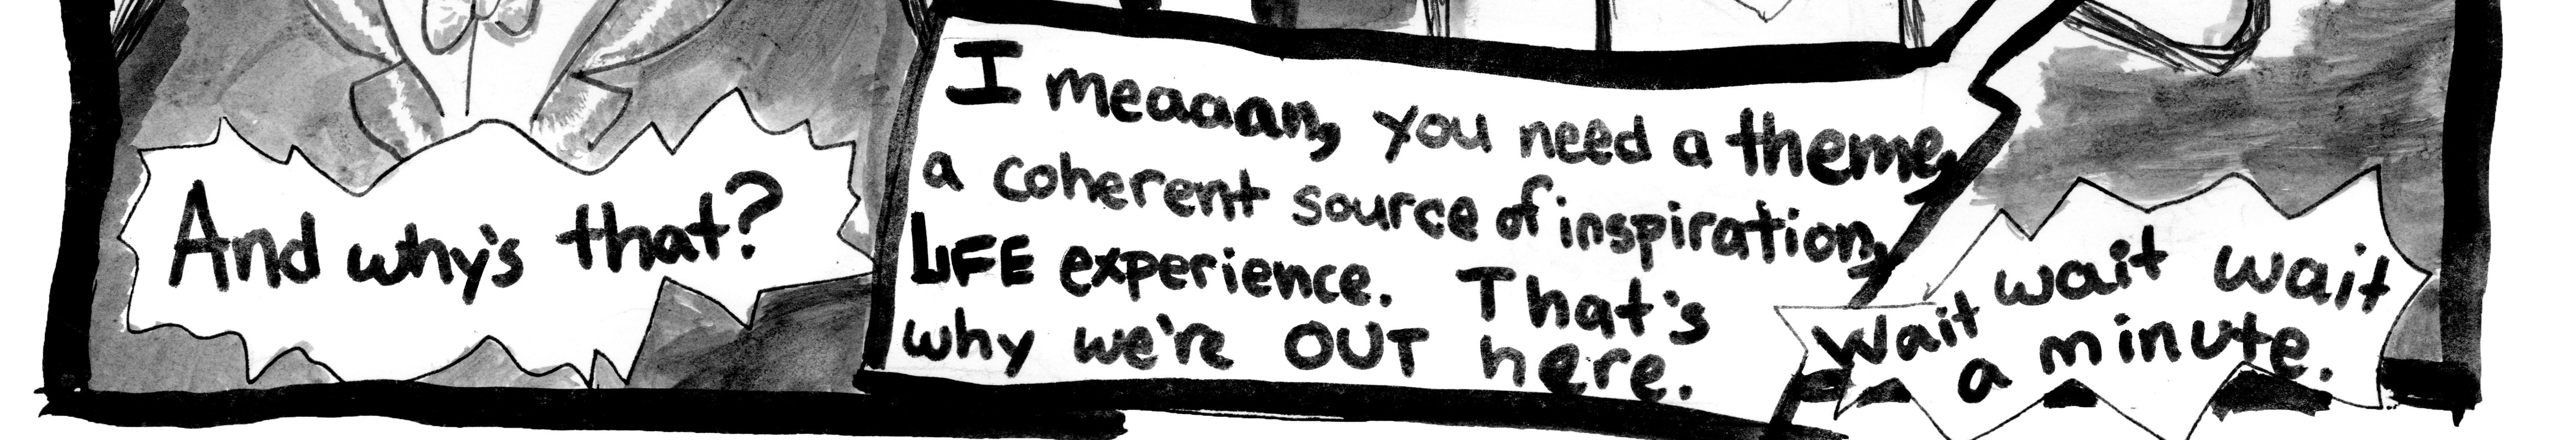 And why's that?
I meaaan, you need a theme,
a coherent source of inspiration,
LIFE experience. That's
why we're OUT here.
Wait wait wait
a minute.